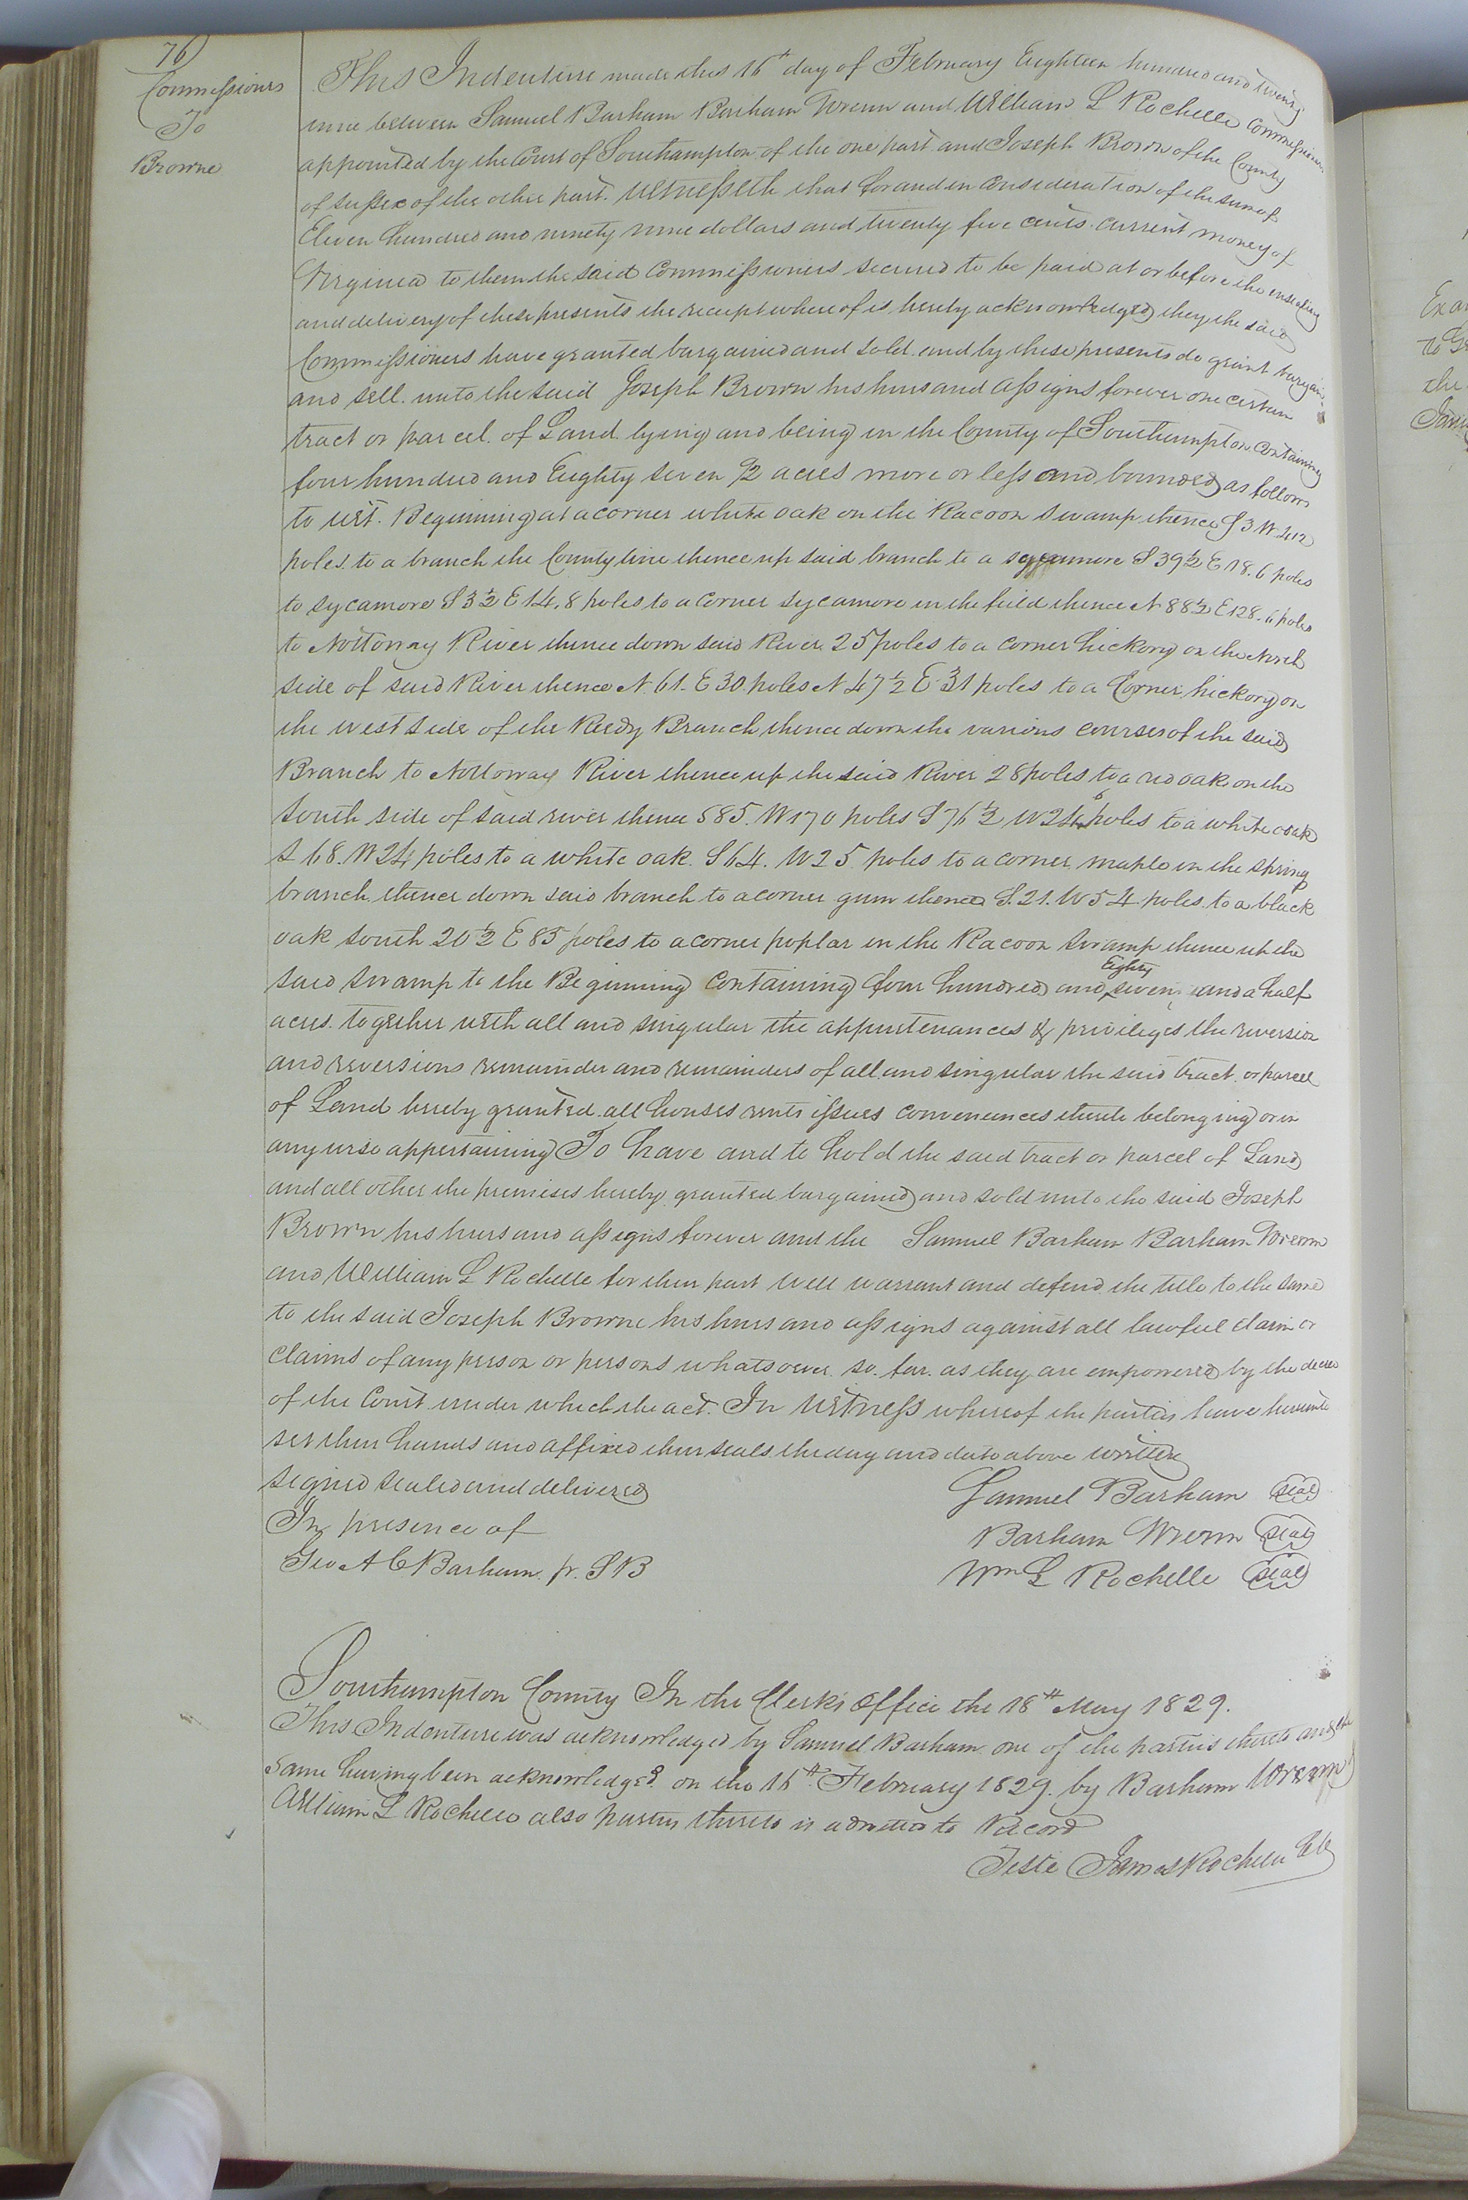 76
Commissioners
To
Browne
This Indenture made this 16th day of February Eighteen hundred and twenty
nine between Samuel Barham Barham Wrenn and William L Rochelle Commissioners
appointed by the Court of Southampton of the one part and Joseph Brown of the County
of Sussex of the other part. Witnesseth that for and in Consideration of the sum of
Eleven hundred and ninety nine dollars and twenty five cents current money of
Virginia to them the said Commissioners secured to be paid at or before the ensealing
and delivery of these presents the receipt whereof is hereby acknowledged they the said
Commissioners have granted bargained and sold and by these presents do grant bargain
and sell unto the said Joseph Brown his heirs and assigns forever one certain
tract or parcel of Land lying and being in the County of Southampton containing
four hundred and Eighty seven 1/2 acres more or less and bounded as follows
to wit. Beginning at a corner white oak on the Racoon swamp thence S 3 W 212
poles to a branch the County line thence up said branch to a sycamore S 39½ E 18.6 poles
to sycamore S 3½ E 14.8 poles to a corner sycamore in the field thence N 88½ E 128.6 poles
to Nottoway River thence down said River 25 poles to a corner hickory on the North
side of said River thence N. 61. E 30 poles N 47½ E 31 poles to a Corner hickory on
the west side of the Reedy Branch thence down the various courses of the said
Branch to Nottoway River thence up the said River 28 poles to a red oak on the
South side of said river thence S85. W 170 poles S 76½ W 24 poles to a white oak
S 68. W 24 poles to a white oak S 64. W 25 poles to a corner maple in the spring
branch thence down said branch to a corner gum thence S. 21. W 54 poles to a black
oak South 20½ E 85 poles to a corner poplar in the Racoon swamp thence up the
said swamp to the Beginning containing four hundred and Eighty seven and a half
acres together with all and singular the appurtenances & privileges the reversion
and reversions remainder and remainders of all and singular the said tract or parcel
of Land hereby granted all houses rents issues conveniences thereto belonging or in
any wise appertaining To have and to hold the said tract or parcel of Land
and all other the premises hereby granted bargained and sold unto the said Joseph
Brown his heirs and assigns forever and the Samuel Barham Barham Wrenn
and William L Rochelle for their part will warrant and defend the title to the same
to the said Joseph Browne his heirs and assigns against all lawful claim or
claims of any person or persons whatsoever so far as they are empowered by the decree
of the Court under which the act. In Witness whereof the parties have hereunto
set their hands and affixed their seals the day and date above written
signed sealed and delivered
In presence of
Geo A C Barham. pr. S B
Samuel Barham seal
Barham Wrenn seal
Wm L Rochelle seal
Southampton County In the Clerk's Office the 18th May 1829.
This Indenture was acknowledged by Samuel Barham one of the parties thereto and the
same having been acknowledged on the 16th February 1829. by Barham Wrenn
William L Rochelle also parties thereto is admitted to Record
Teste James Rochelle Clk